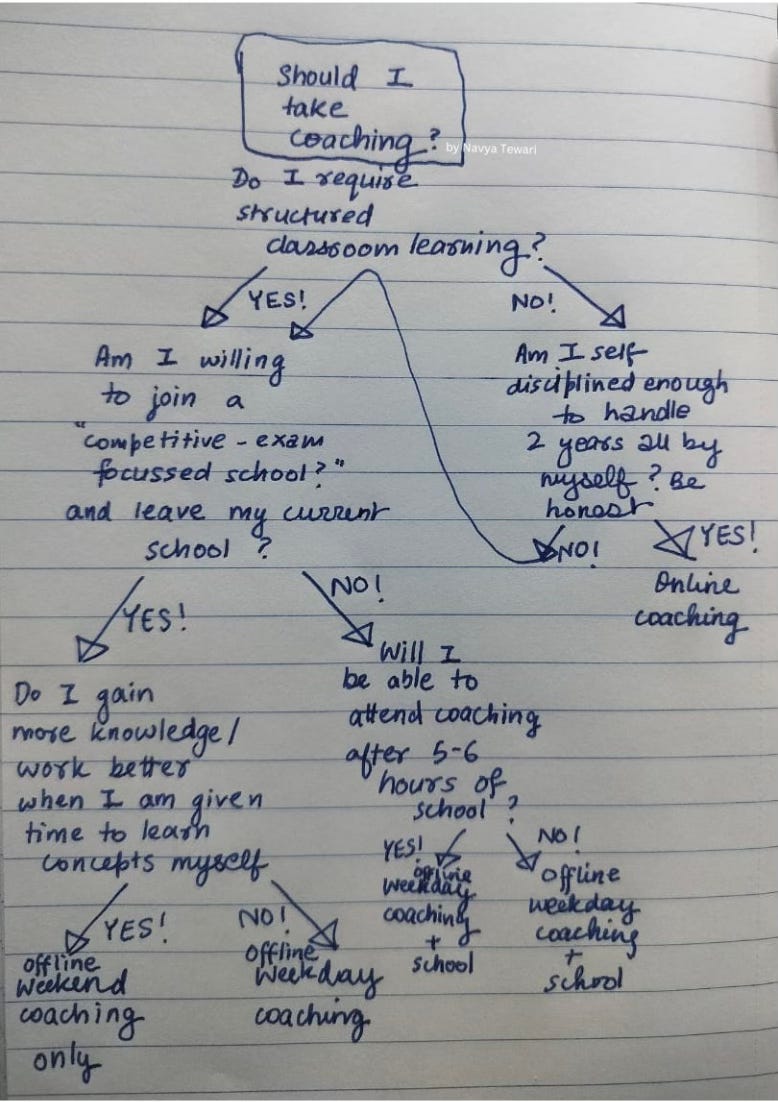 Should I
take
coaching?
by Navya Tewari
Do I require
structured
classroom learning?
YES!
NO!
Am I willing
to join a
"competitive-exam
focussed school?"
and leave my current
school?
Am I self-
disciplined enough
to handle
2 years all by
myself? Be
honest
NO!
YES!
Online
coaching
YES!
NO!
Do I gain
more knowledge/
work better
when I am given
time to learn
concepts myself
Will I
be able to
attend coaching
after 5-6
hours of
school?
YES!
offline
weekday
coaching
+
school
NO!
offline
weekday
coaching
+
school
YES!
offline
weekend
coaching
only
NO!
offline
weekday
coaching